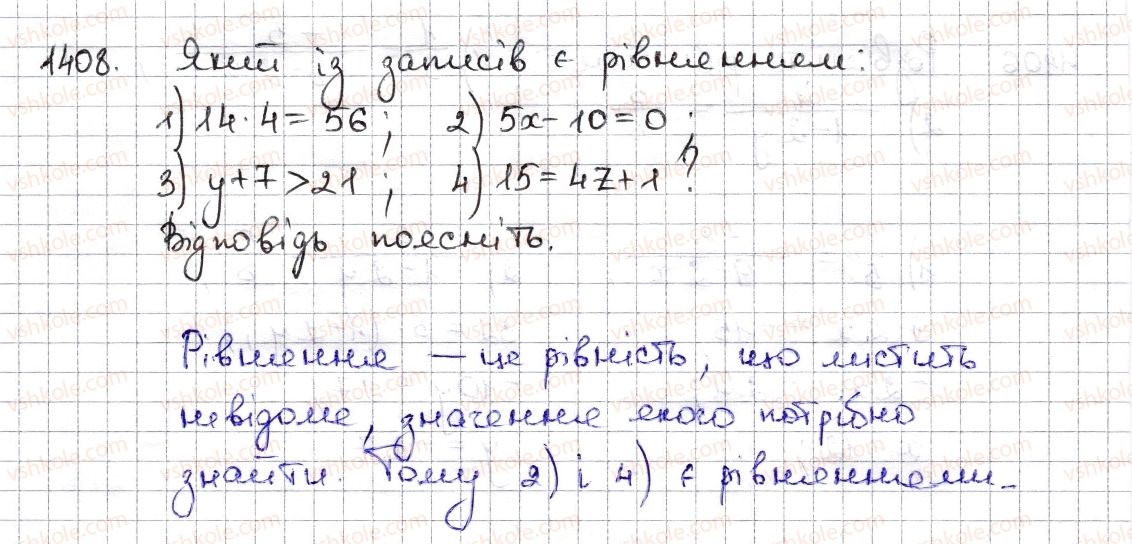 1408. Який із записів є рівнянням:
1) 14·4=56; 2) 5x-10=0;
3) y+7>21; 4) 15=4z+1?
Відповідь поясніть.
Рівняння — це рівність, що містить
невідоме, значення якого потрібно
знайти. Тому 2) і 4) є рівняннями.